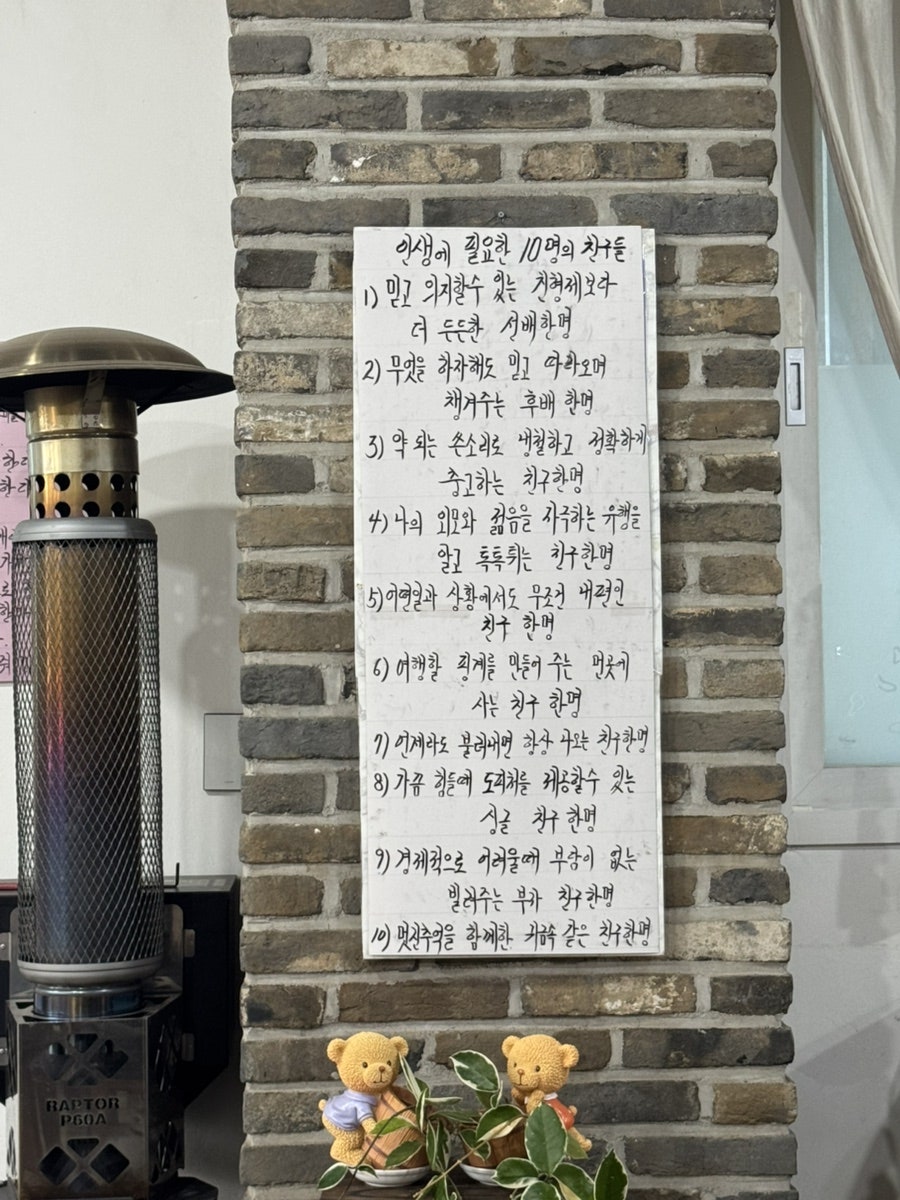 인생에 필요한 10명의 친구들
1) 믿고 의지할수 있는 친형제보다
더 든든한 선배한명
2) 무엇을 하자해도 믿고 따라오며
챙겨주는 후배 한명
3) 약 되는 쓴소리로 냉철하고 정확하게
충고하는 친구한명
4) 나의 외모와 젊음을 자극하는 유행을
알고 톡톡튀는 친구한명
5) 어떤일과 상황에서도 무조건 내편인
친구 한명
6) 여행할 핑계를 만들어 주는 먼곳에
사는 친구 한명
7) 언제라도 불러내면 항상 나오는 친구한명
8) 가끔 힘들때 도피처를 제공할수 있는
싱글 친구 한명
9) 경제적으로 어려울때 부담이 없는
빌려주는 부자 친구한명
10) 멋진추억을 함께한 귀금속 같은 친구한명
RAPTOR
P60A